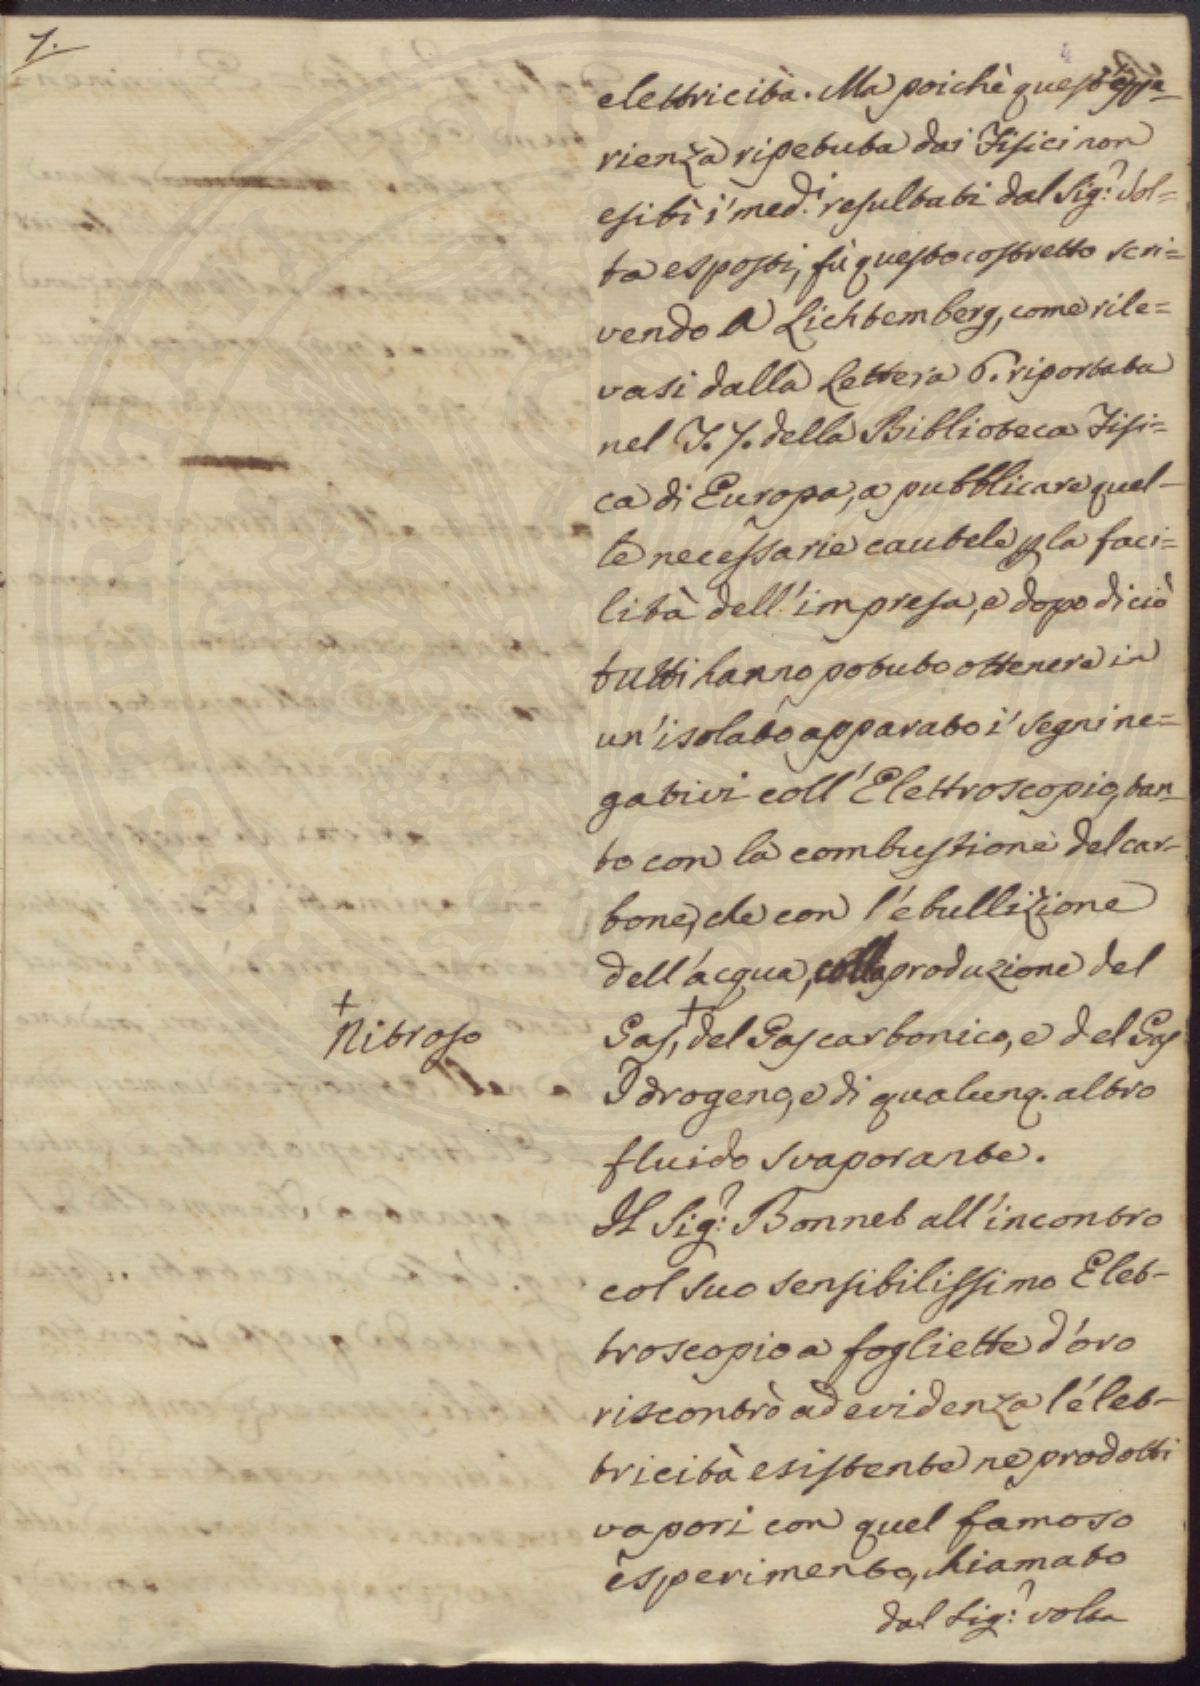 7.
elettricità. Ma poichè quest'espe-
rienza ripetuta dai Fisici non
esibì i' med.i resultati dal Sig.r Vol=
ta esposti, fù questo costretto scri=
vendo A Lichtemberg, come rile=
vasi dalla Lettera 6. riportata
nel T. 7. della Biblioteca Fisi=
ca di Europa, a pubblicare quel-
le necessarie cautele p la faci=
lità dell'impresa, e dopo di ciò
tutti hanno potuto ottenere in
un'isolato apparato i' segni ne=
gativi coll'Elettroscopio, tan-
to con la combustione del car-
bone, che con l'ebullizione
dell'acqua, colla produzione del
+
Nitroso
Gas,+ del Gas carbonico, e del Gas
Idrogeno, e di qualunq. altro
fluido svaporante.
Il Sig.r Bonnet all'incontro
col suo sensibilissimo Elet-
troscopio a fogliette d'oro
riscontrò ad evidenza l'elet-
tricità esistente ne prodotti
vapori con quel famoso
esperimento, chiamato
dal Sig.r volta